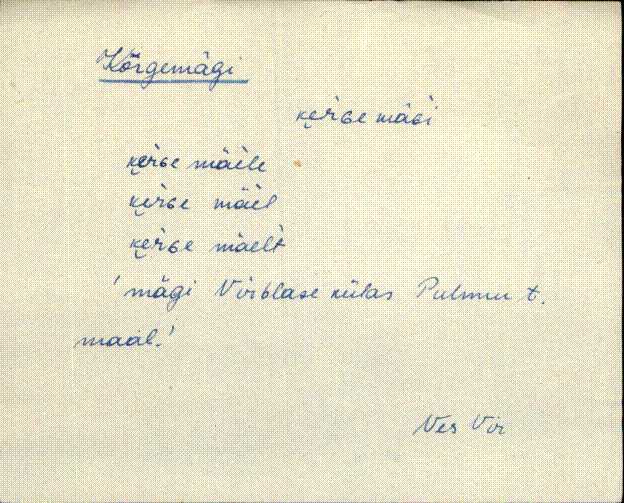 Kõrgemägi
ke̮rɢe mäɢi
ke̮rɢe mäele
ke̮rɢe mäel
ke̮rɢe mäelt
'mägi Viŕblase külas Pulmu t.
maal.'